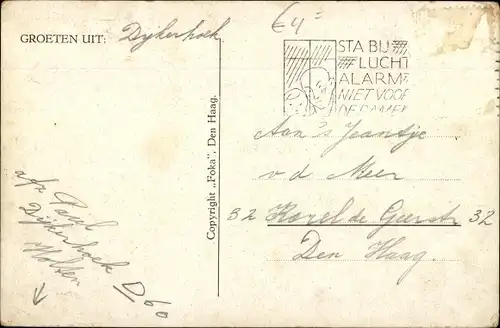 €4=
GROETEN UIT: Dijkerhoek
STA BIJ
LUCHT
ALARM
NIET VOOR
DE RAMEN
Copyright „Foka", Den Haag.
Aan 's Jeantje
v d Meer
32 Karel de Geerstr 32
Den Haag.
afz Paul
Dijkerhoek D 60
Holten